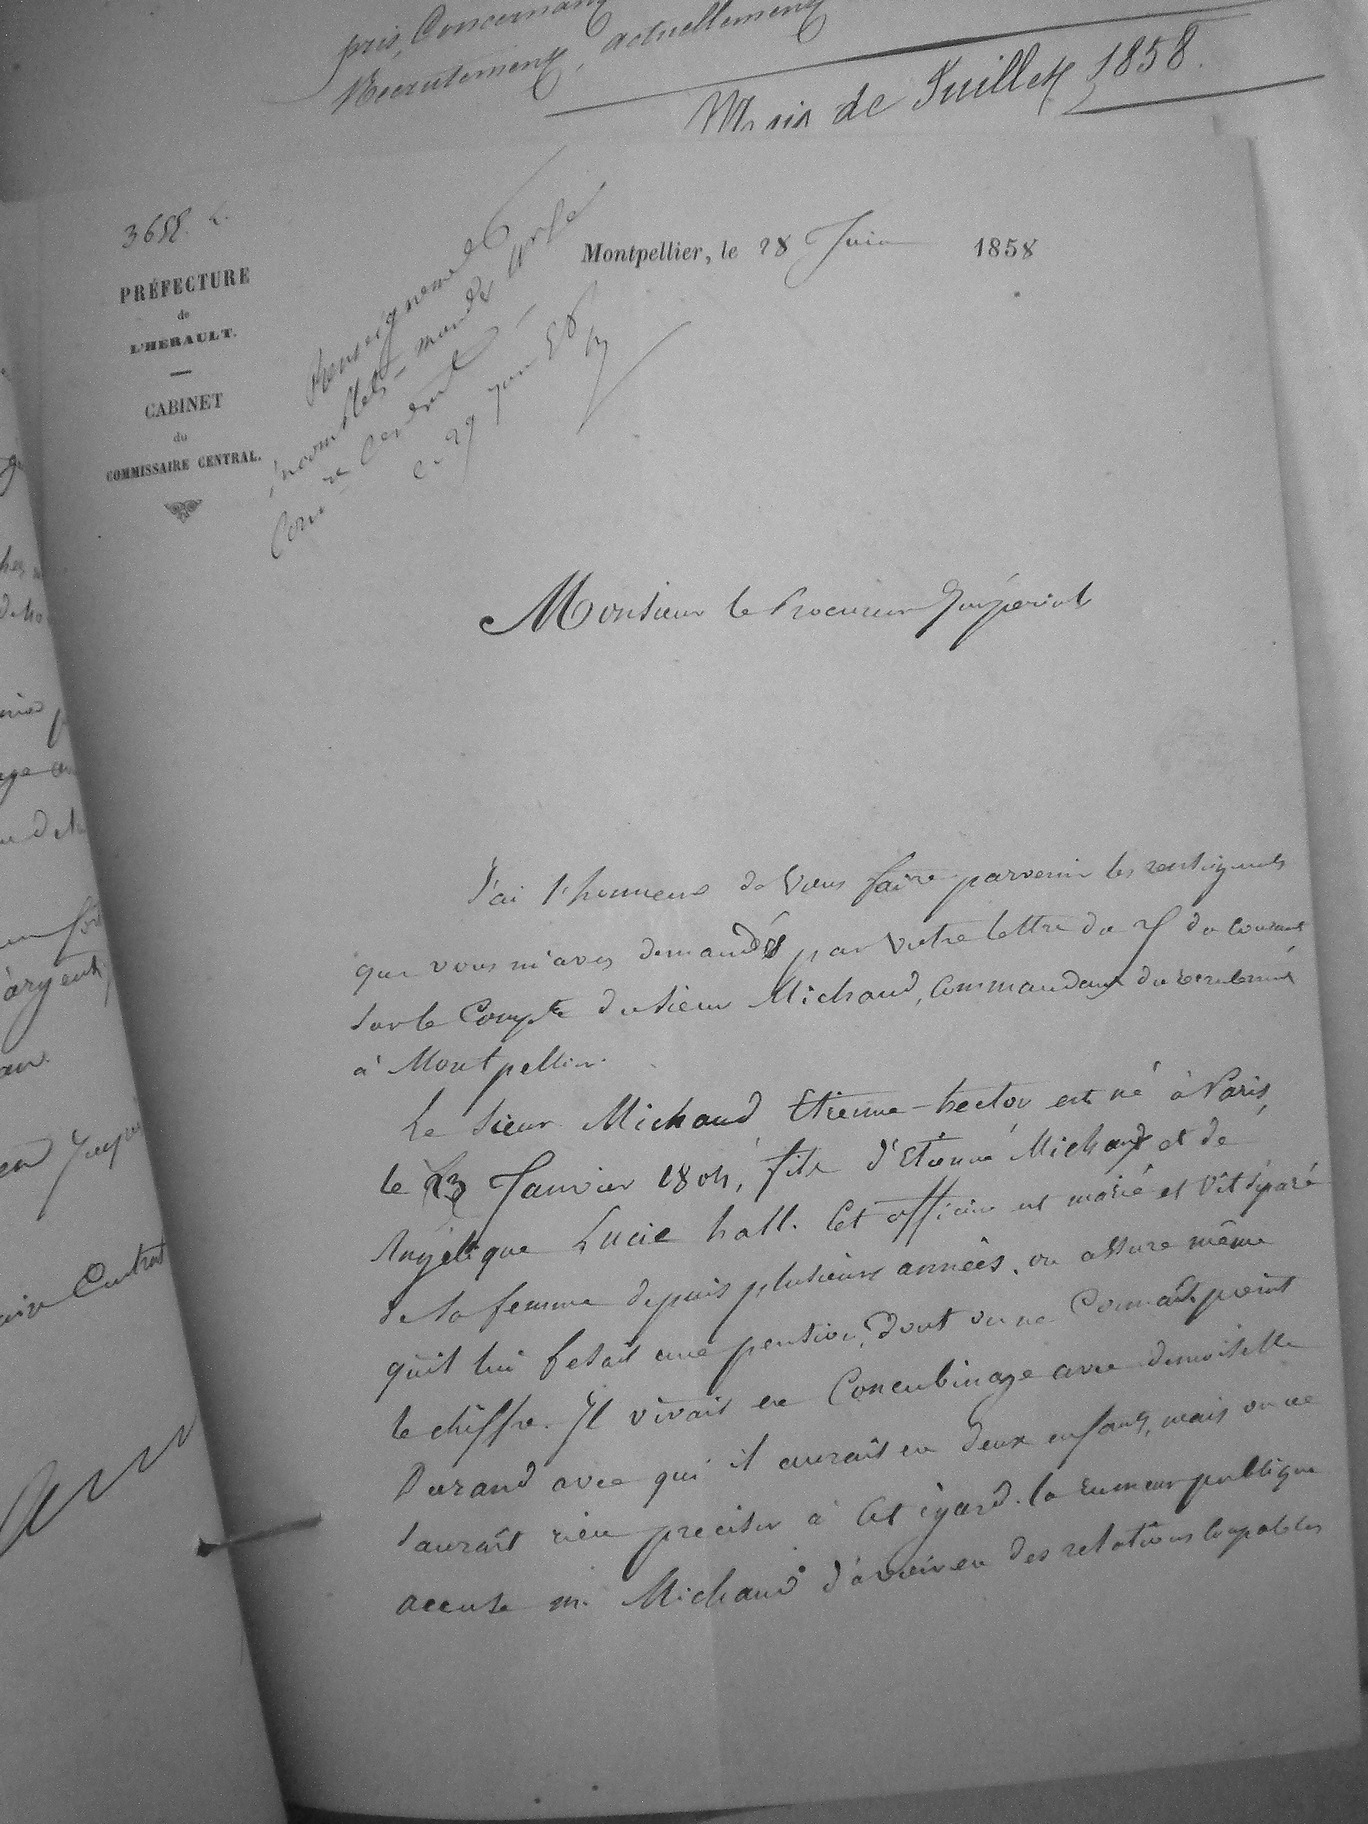 pris, Concernant
Recrutement, actuellement
Mois de Juillet 1858.
3658.
PRÉFECTURE
de
L'HÉRAULT.
CABINET
du
COMMISSAIRE CENTRAL.
Montpellier, le 28 Juin 1858
Renseignements
incomplets - mandé
Comre Central
29 juin 58
Monsieur le Procureur Impérial
J'ai l'honneur de vous faire parvenir les renseignements
que vous m'avez demandés par votre lettre du du courant
sur le Compte du sieur Michaud, Commandant du recrutement
à Montpellier.
Le sieur Michaud Etienne-hector est né à Paris,
le Janvier 1804, fils d'Etienne Michaud et de
Angélique Lucie hall. Cet officier est marié et vit séparé
de sa femme depuis plusieurs années, on assure même
qu'il lui fesait une pension, dont on ne Connait point
le chiffre. Il vivait en Concubinage avec demoiselle
Durand avec qui il aurait eu deux enfants, mais on ne
saurait rien preciser à Cet égard. la rumeur publique
accuse m. Michaud d'avoir eu des relations Coupables
argent,
Central